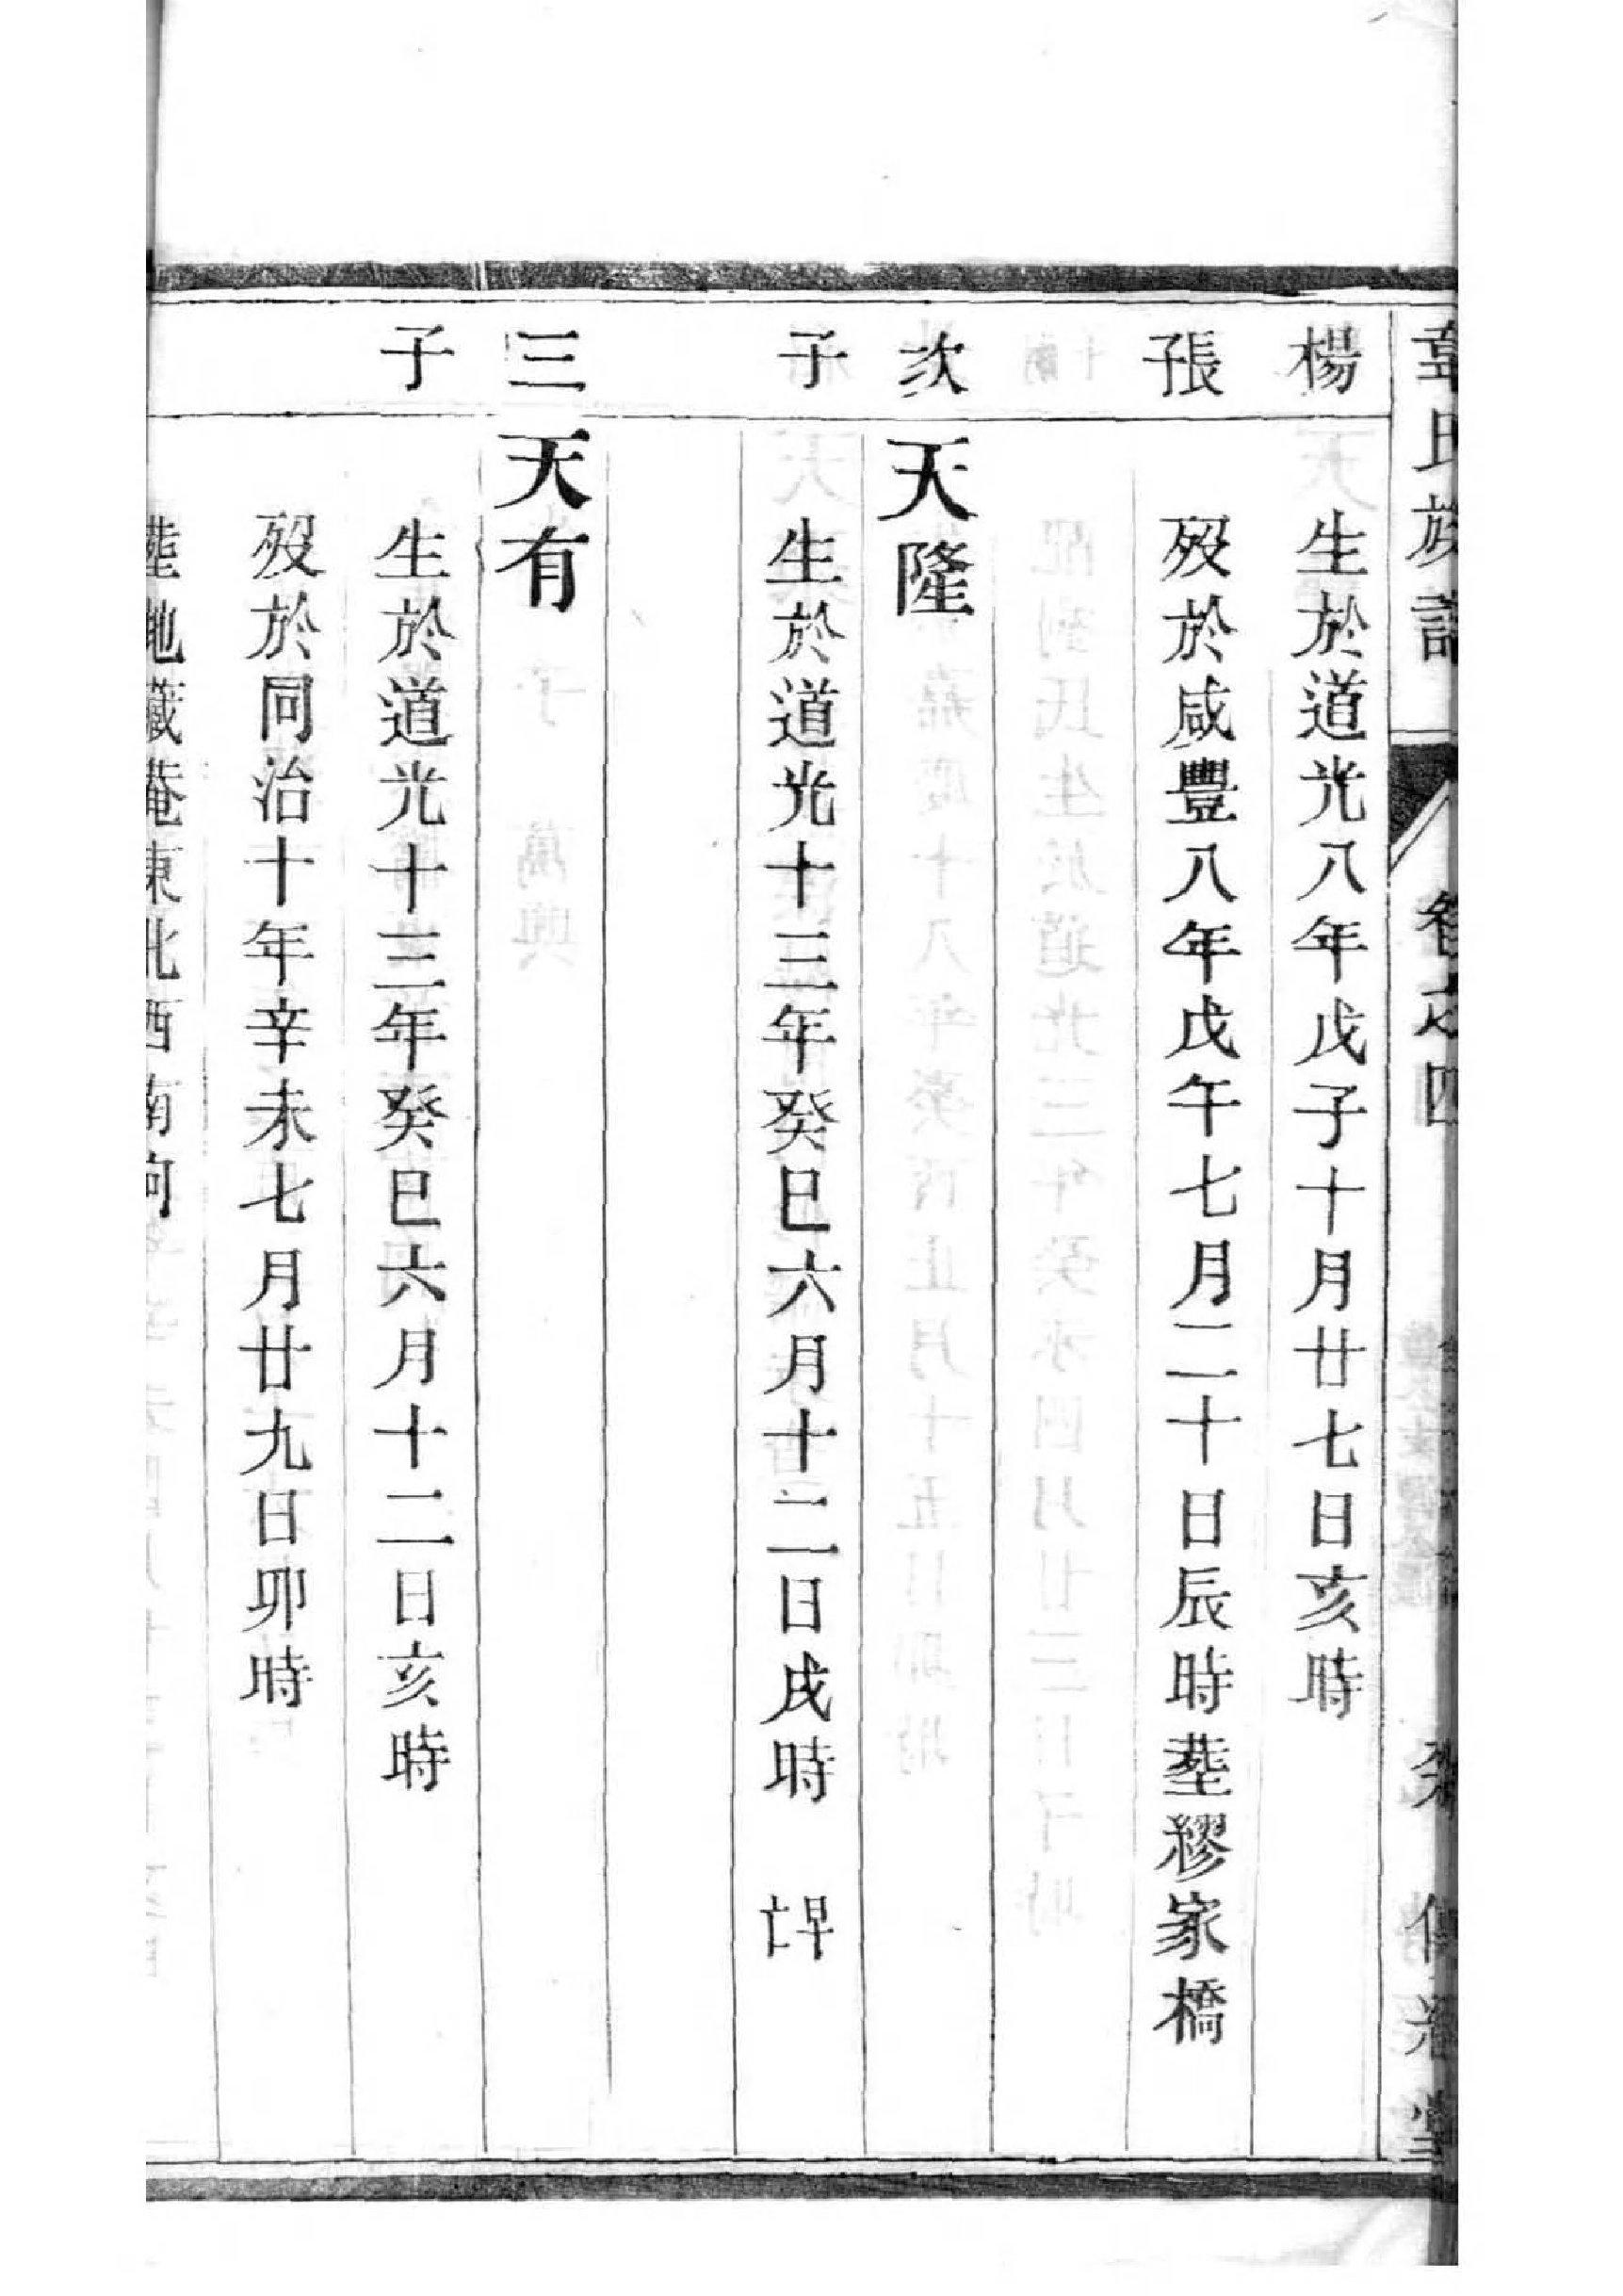 章氏族譜 卷之四
楊 生於道光八年戊子十月廿七日亥時
張 歿於咸豐八年戊午七月二十日辰時塟繆家橋
次 天隆
子 生於道光十三年癸巳六月十二日戌時 早亡
三 天有
子 生於道光十三年癸巳六月十二日亥時
歿於同治十年辛未七月廿九日卯時
塟地藏菴東北西南向